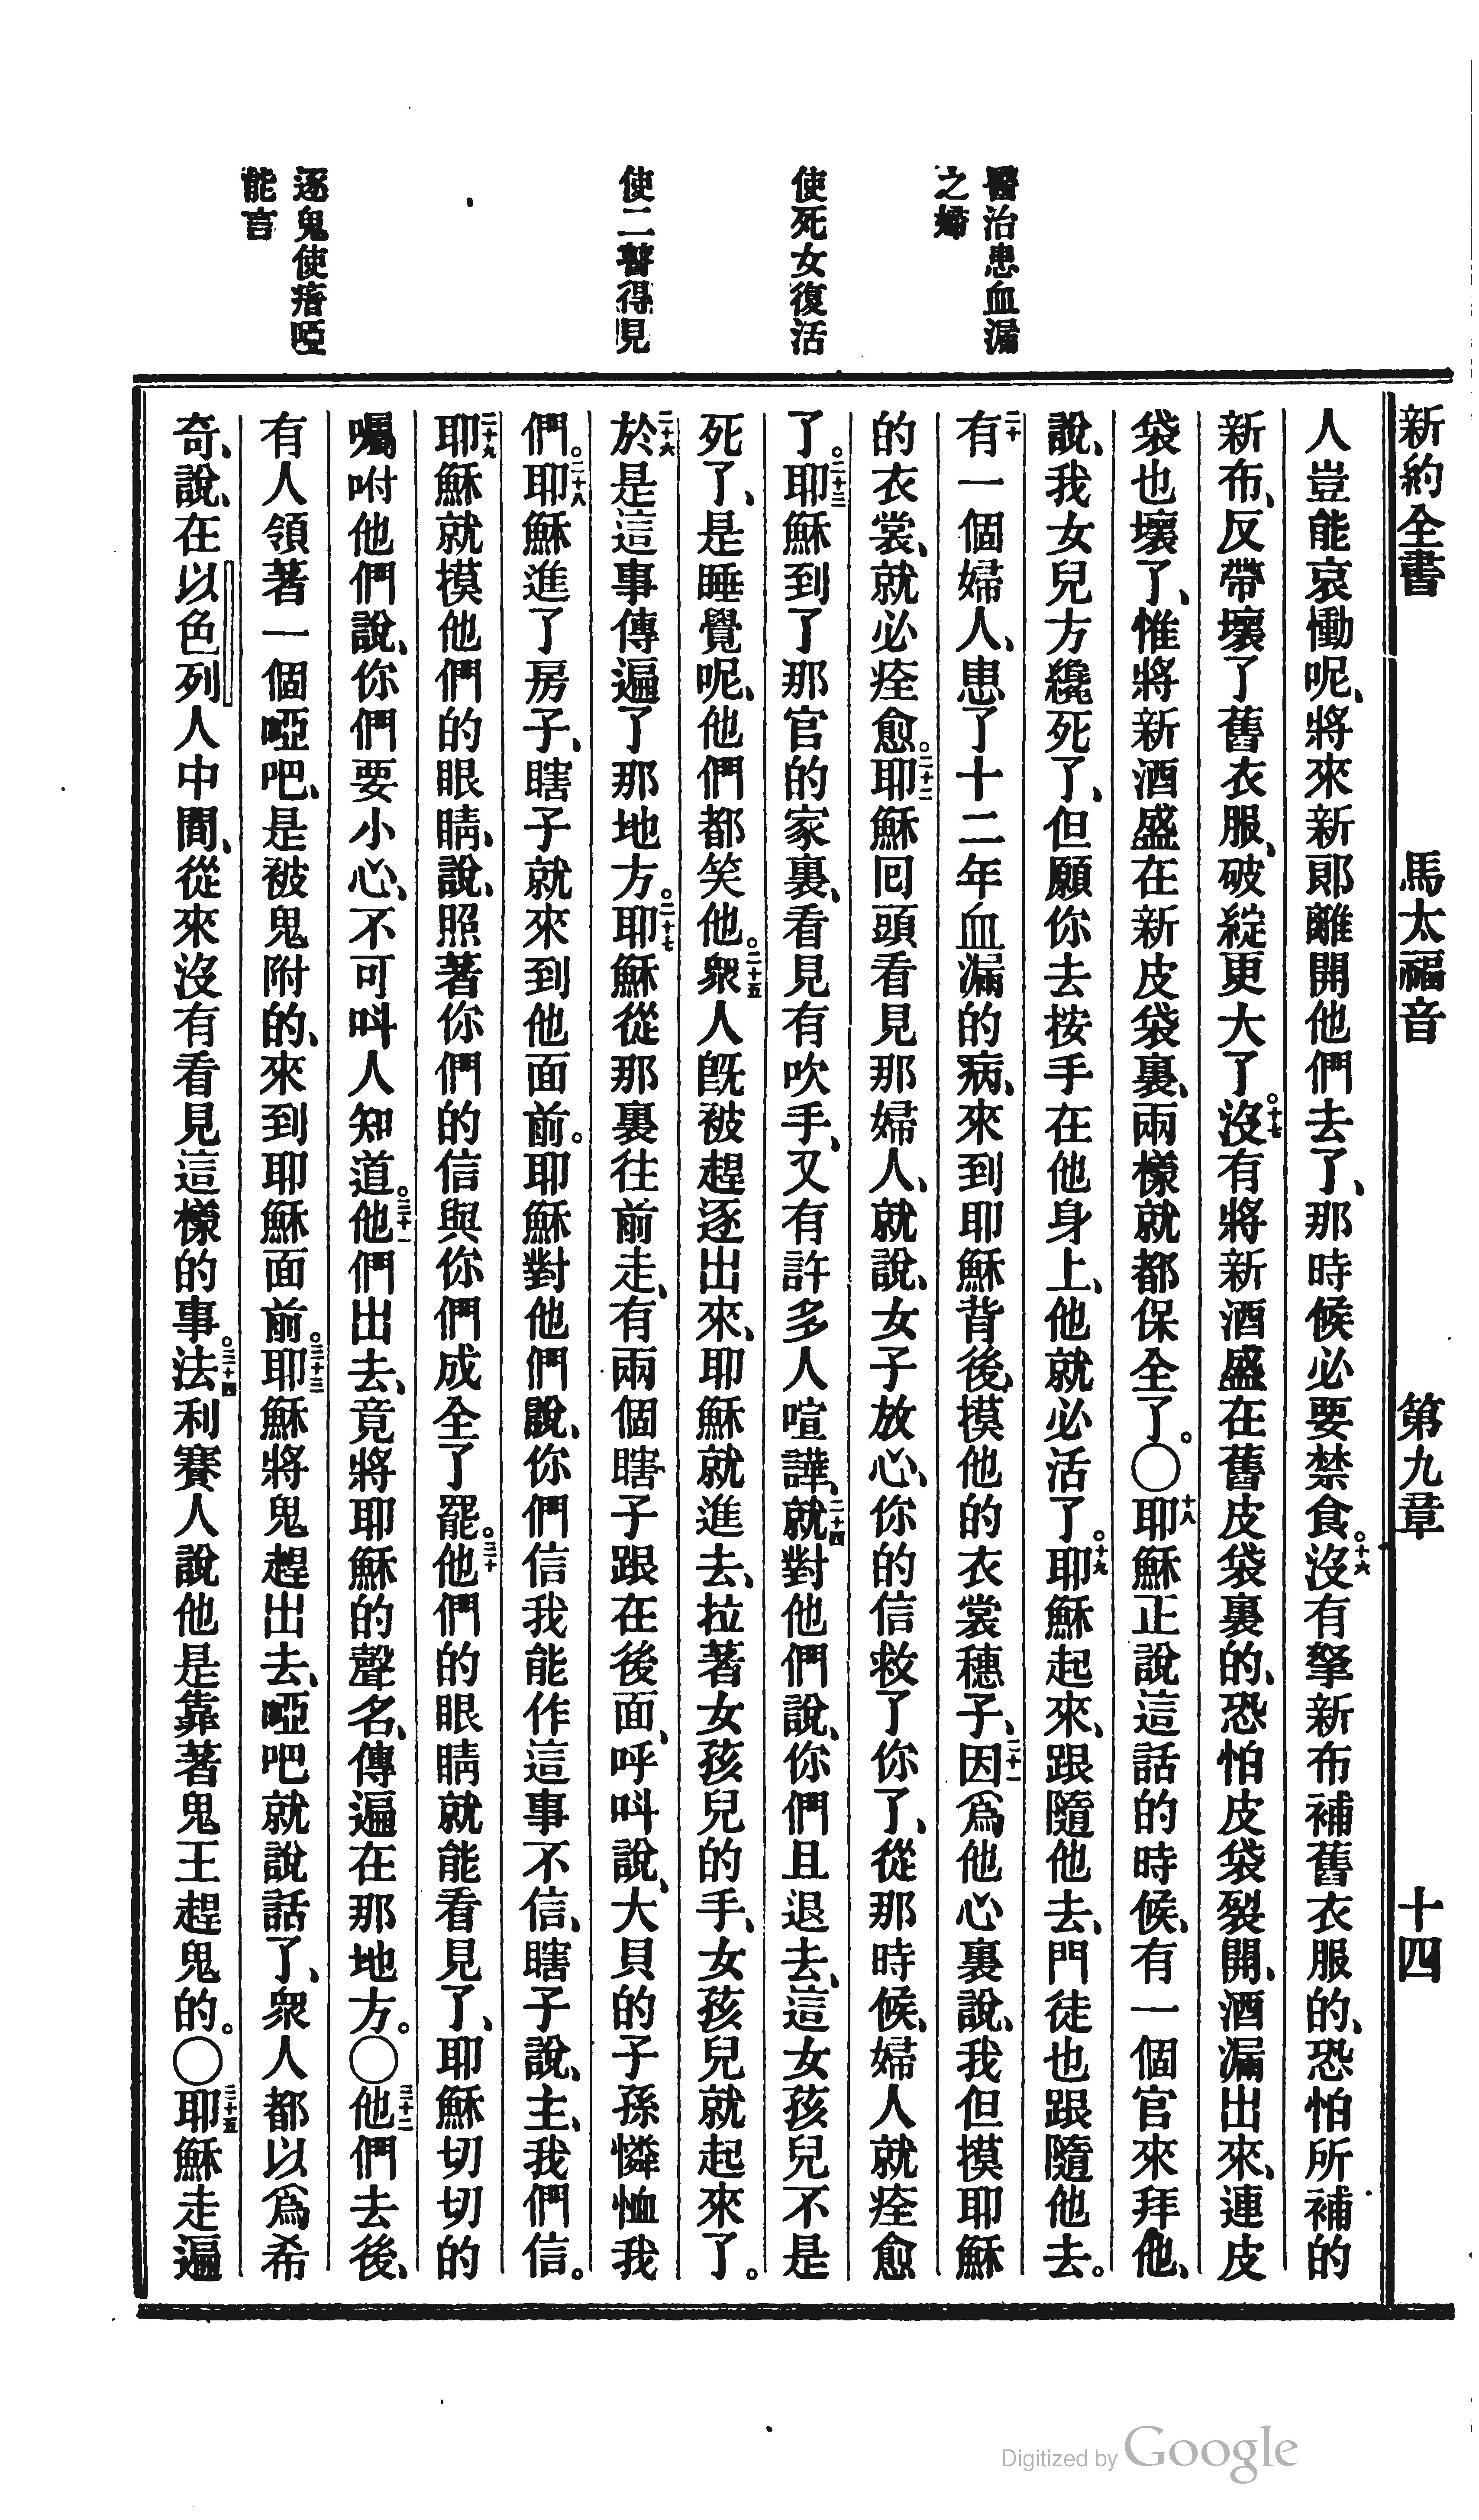 新約全書 馬太福音 第九章 十四
醫治患血漏
之婦
使死女復活
使二瞽得見
逐鬼使瘖啞
能言
人豈能哀慟呢、將來新郞離開他們去了、那時候必要禁食。十六沒有拏新布補舊衣服的、恐怕所補的
新布、反帶壞了舊衣服、破綻更大了。十七沒有將新酒盛在舊皮袋裏的、恐怕皮袋裂開、酒漏出來、連皮
袋也壞了、惟將新酒盛在新皮袋裏、兩樣就都保全了。〇十八耶穌正說這話的時候、有一個官來拜他、
說、我女兒方纔死了、但願你去按手在他身上、他就必活了。十九耶穌起來、跟隨他去、門徒也跟隨他去。
二十有一個婦人、患了十二年血漏的病、來到耶穌背後、摸他的衣裳穗子、二十一因爲他心裏說、我但摸耶穌
的衣裳、就必痊愈。二十二耶穌回頭看見那婦人、就說、女子放心、你的信救了你了、從那時候、婦人就痊愈
了。二十三耶穌到了那官的家裏、看見有吹手、又有許多人喧譁、二十四就對他們說、你們且退去、這女孩兒不是
死了、是睡覺呢、他們都笑他。二十五衆人旣被趕逐出來、耶穌就進去、拉著女孩兒的手、女孩兒就起來了。
二十六於是這事傳遍了那地方。二十七耶穌從那裏往前走、有兩個瞎子跟在後面、呼呌說、大貝的子孫憐恤我
們。二十八耶穌進了房子、瞎子就來到他面前。耶穌對他們說、你們信我能作這事不信、瞎子說、主、我們信。
二十九耶穌就摸他們的眼睛、說、照著你們的信與你們成全了罷。三十他們的眼睛就能看見了、耶穌切切的
囑咐他們說、你們要小心、不可呌人知道。三十一他們出去、竟將耶穌的聲名、傳遍在那地方。〇三十二他們去後、
有人領著一個啞吧、是被鬼附的、來到耶穌面前。三十三耶穌將鬼趕出去、啞吧就說話了、衆人都以爲希
奇、說、在以色列人中間、從來沒有看見這樣的事。三十四法利賽人說他是靠著鬼王趕鬼的。〇三十五耶穌走遍
Digitized by Google